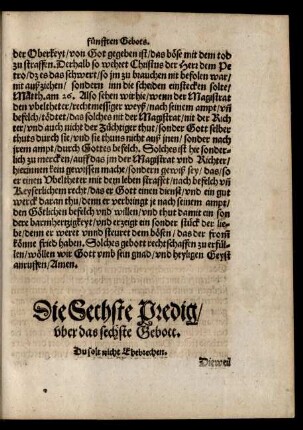 fünfften Gebots.
der Oberkeyt/ von Got gegeben ist/ das böse mit dem tod
zu straffen. Derhalb so wehret Christus der Herr dem Pe
tro/ dz es das schwert/ so jm zu brauchen nit befolen war/
nit außziehen/ sondern inn die scheden einstecken solte/
Matth. am 26. Also sehen wir hie/ wenn der Magistrat
den vbeltheter/ rechtmessiger weyß/ nach seinem ampt/ vñ
befelch/ tödtet/ das solches nit der Magistrat/ nit der Rich
ter/ vnd auch nicht der Züchtiger thut/ sonder Gott selber
thuts durch sie/ vnd sie thuns nicht auß jnen/ sonder nach
jrem ampt/ durch Gottes befelch. Solches ist hie sonder-
lich zu mercken/ auff das jm der Magistrat vnd Richter/
hierinnen kein gewissen mache/ sondern gewiß sey/ das/ so
er einen Vbeltheter mit dem leben strafft/ nach befelch vñ
Keyserlichem recht/ das er Gott einen dienst/ vnd ein gut
werck daran thu/ denn er verbringt je nach seinem ampt/
den Götlichen befelch vnd willen/ vnd thut damit ein son
dere barmhertzigkeyt/ vnd erzeigt ein sonder stück der lie-
be/ denn er weret vnnd steuret dem bösen/ das der from̃
könne fried haben. Solches gebott rechtschaffen zu erfül-
len/ wöllen wir Gott vmb sein gnad/ vnd heyligen Geyst
anruffen/ Amen.
Die Sechste Predig/
vber das sechste Gebott.
Du solt nicht Ehebrechen.
Dieweil